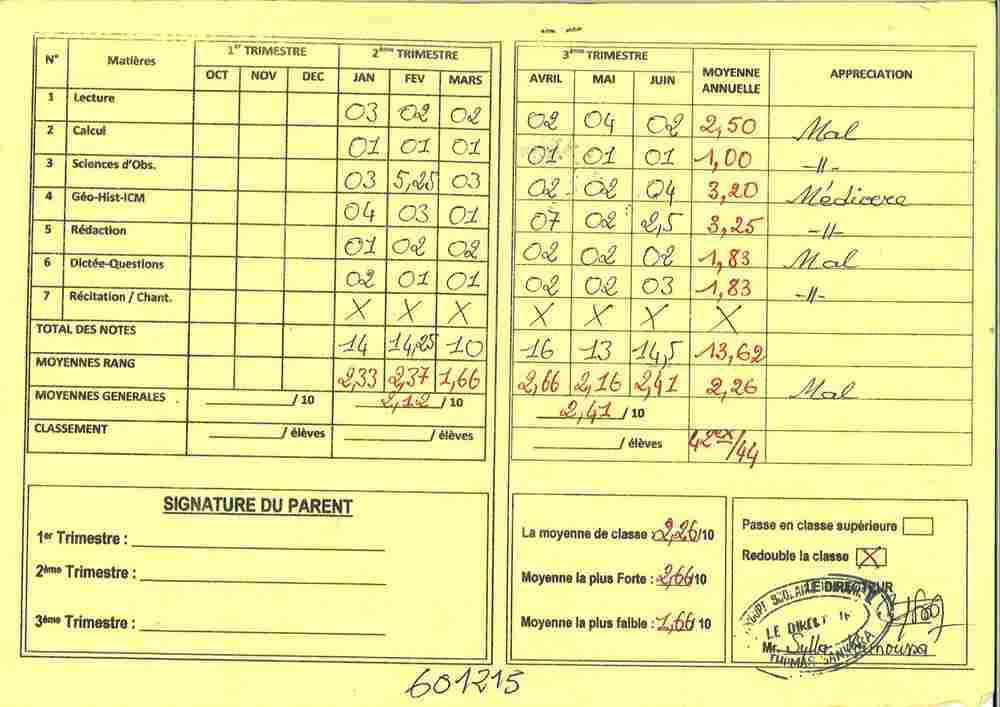 N° Matières 1er TRIMESTRE 2ème TRIMESTRE 3ème TRIMESTRE MOYENNE ANNUELLE APPRECIATION
OCT NOV DEC JAN FEV MARS AVRIL MAI JUIN
1 Lecture 03 02 02 02 04 02 2,50 Mal
2 Calcul 01 01 01 01 01 01 1,00 -//-
3 Sciences d'Obs. 03 5,25 03 02 02 04 3,20 Médiocre
4 Géo-Hist-ICM 04 03 01 07 02 2,5 3,25 -//-
5 Rédaction 01 02 02 02 02 02 1,83 Mal
6 Dictée-Questions 02 01 01 02 02 03 1,83 -//-
7 Récitation / Chant. X X X X X X X
TOTAL DES NOTES 14 14,25 10 16 13 14,5 13,62
MOYENNES RANG 2,33 2,37 1,66 2,66 2,16 2,41 2,26 Mal
MOYENNES GENERALES / 10 2,12 / 10 2,41 / 10
CLASSEMENT / élèves / élèves / élèves 42ex/44
SIGNATURE DU PARENT
1er Trimestre :
2ème Trimestre :
3ème Trimestre :
La moyenne de classe : 2,26/10
Moyenne la plus Forte : 2,66/10
Moyenne la plus faible : 1,66/10
Passe en classe supérieure
Redouble la classe X
LE DIRECTEUR
LE DIRECT
Mr. Sylla
601215